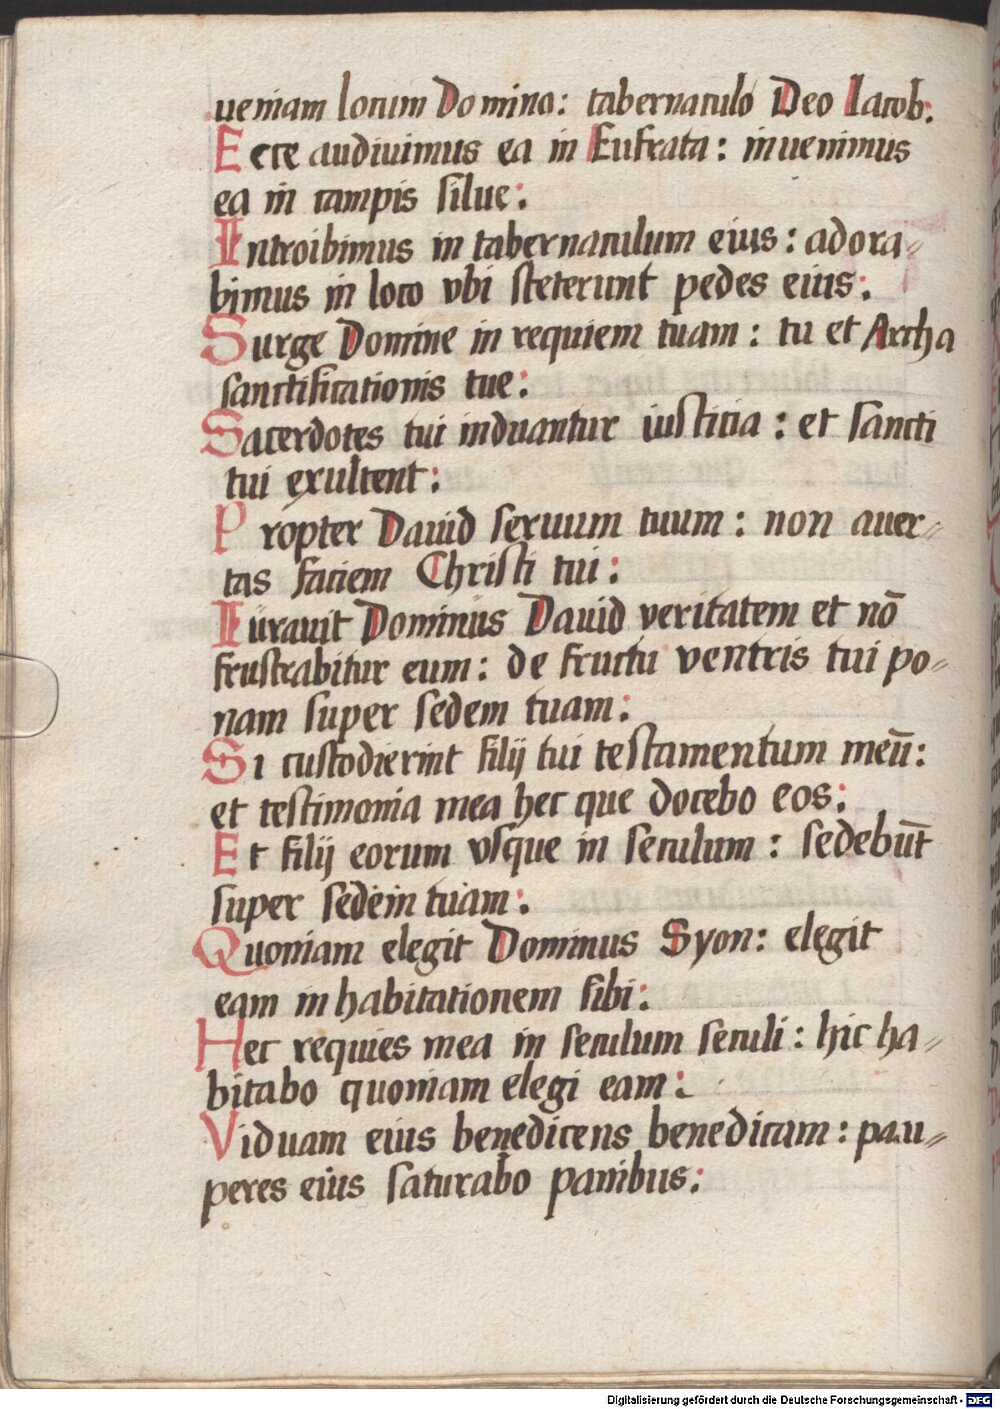 ueniam locum Domino: tabernaculo Deo Iacob:
Ecce audiuimus ea in Eufrata: inuenimus
ea in campis silue:
Introibimus in tabernaculum eius: adora-
bimus in loco vbi steterunt pedes eius:
Surge Domine in requiem tuam: tu et Archa
sanctificationis tue:
Sacerdotes tui induantur iusticia: et sancti
tui exultent:
Propter Dauid seruum tuum: non auer-
tas faciem Christi tui:
Iurauit Dominus Dauid veritatem et nō
frustrabitur eum: de fructu ventris tui po-
nam super sedem tuam:
Si custodierint filij tui testamentum meū:
et testimonia mea hec que docebo eos:
Et filij eorum vsque in seculum: sedebūt
super sedem tuam:
Quoniam elegit Dominus Syon: elegit
eam in habitationem sibi:
Hec requies mea in seculum seculi: hic ha-
bitabo quoniam elegi eam:
Viduam eius benedicens benedicam: pau-
peres eius saturabo panibus:
Digitalisierung gefördert durch die Deutsche Forschungsgemeinschaft - DFG